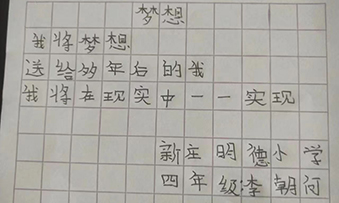 梦想
我将梦想
送给多年后的我
我将在现实中一一实现
新庄明德小学
四年级李朝问